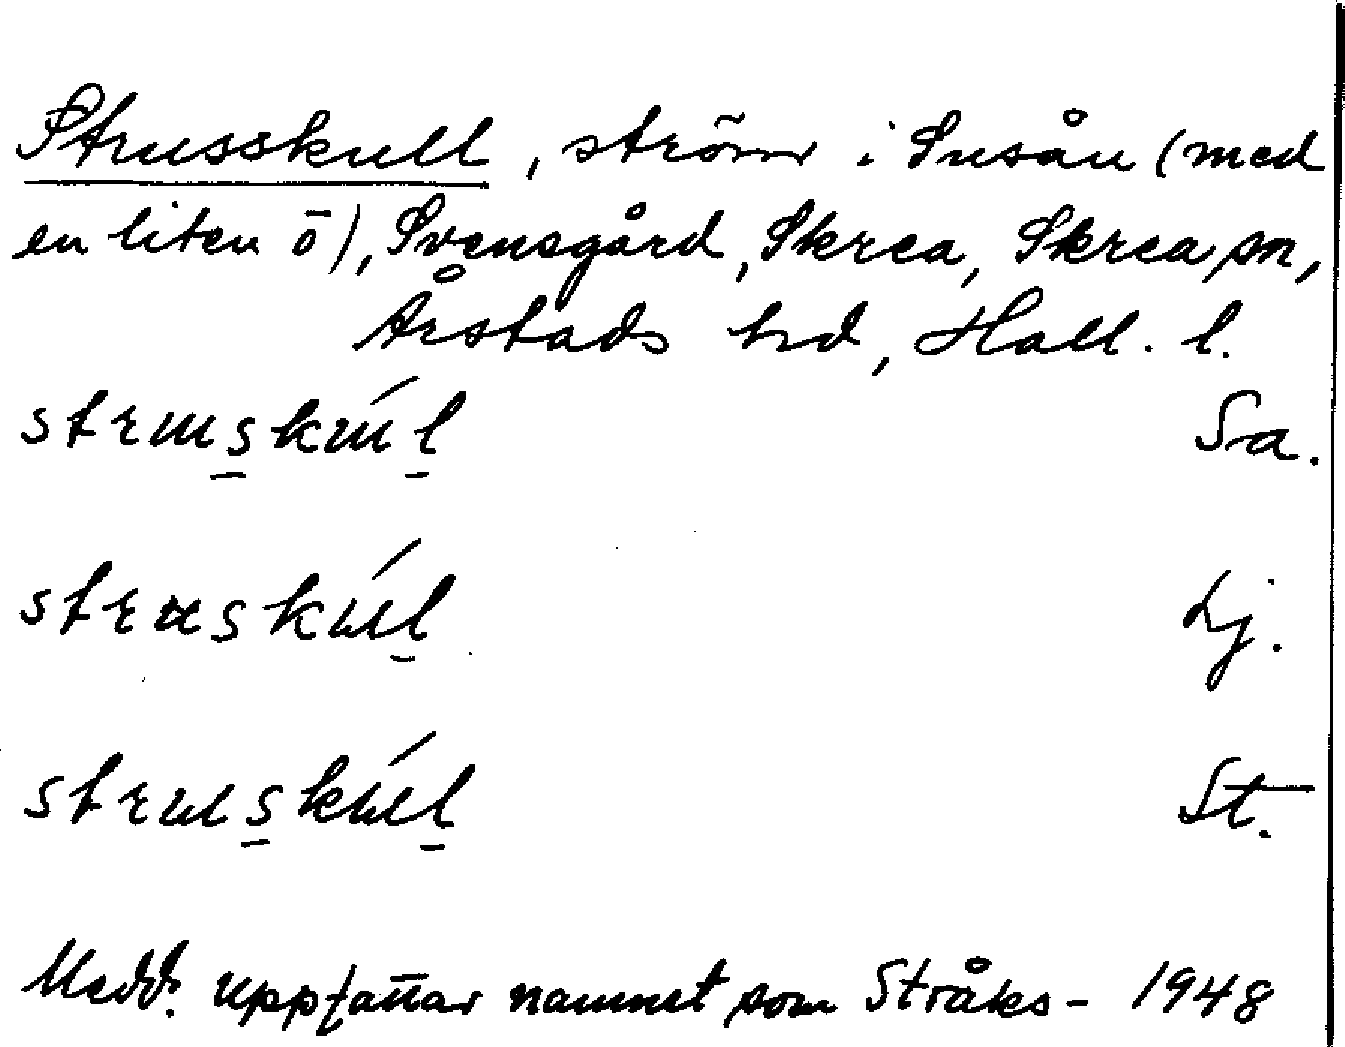 Strusskull, ström i Susån (med
en liten ö), Svensgård, Skrea, Skrea sn,
Årstads hd, Hall. l.
Sa.
Lj.
St.
Medd. uppfattar namnet som Stråks- 1948